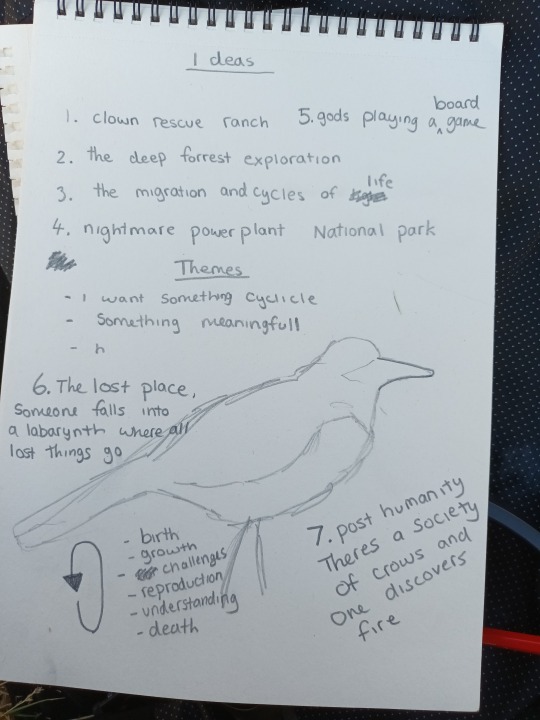 Ideas
1. clown rescue ranch
5. gods playing a board game
2. the deep forrest exploration
3. the migration and cycles of life
4. nightmare power plant National park
Themes
- I want something cyclicle
- Something meaningfull
- h
6. The lost place,
Someone falls into
a labarynth where all
lost things go
- birth
- growth
- challenges
- reproduction
- understanding
- death
7. post humanity
Theres a society
of crows and
one discovers
fire